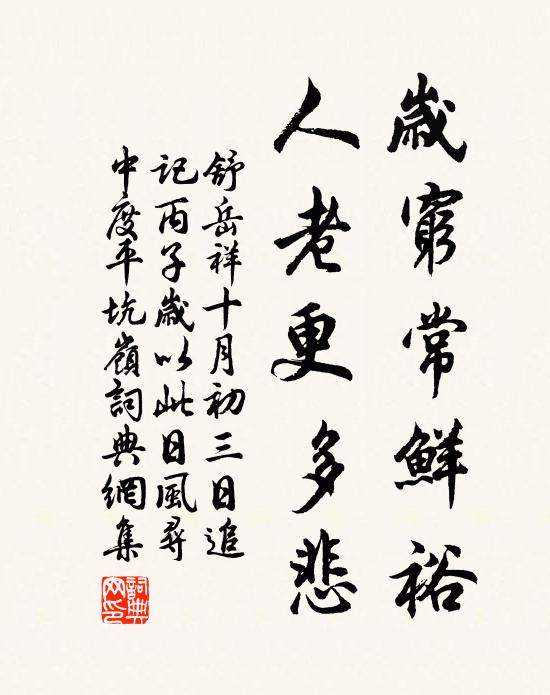 歲窮常鮮裕
人老更多悲
舒岳祥十月初三日追
記丙子歲以此日風尋
中度平坑嶺詞典網集
詞典
网印